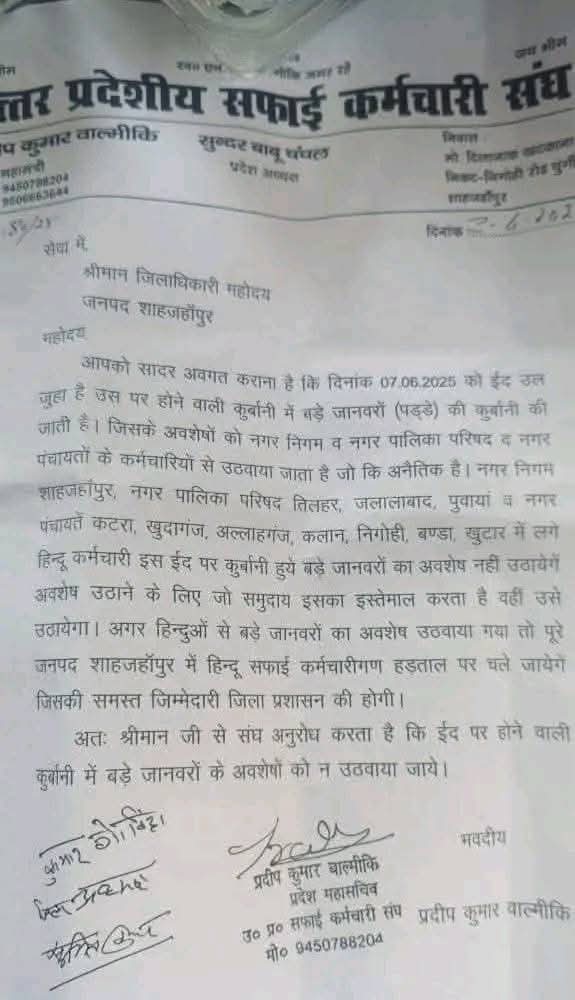 जय भीम
त्तर प्रदेशीय सफाई कर्मचारी संघ
प कुमार वाल्मीकि
सुन्दर बाबू चंचल
महामंत्री
प्रदेश अध्यक्ष
9450788204
9506663644
निवास
शाहजहाँपुर
दिनांक
सेवा में,
श्रीमान जिलाधिकारी महोदय
जनपद शाहजहाँपुर
महोदय
आपको सादर अवगत कराना है कि दिनांक 07.06.2025 को ईद उल
जुहा है उस पर होने वाली कुर्बानी में बड़े जानवरों (पड्डे) की कुर्बानी की
जाती है। जिसके अवशेषों को नगर निगम व नगर पालिका परिषद द नगर
पंचायतों के कर्मचारियों से उठवाया जाता है जो कि अनैतिक है। नगर निगम
शाहजहाँपुर, नगर पालिका परिषद तिलहर, जलालाबाद, पुवायां व नगर
पंचायतें कटरा, खुदागंज, अल्लाहगंज, कलान, निगोही, बण्डा, खुटार में लगे
हिन्दू कर्मचारी इस ईद पर कुर्बानी हुये बड़े जानवरों का अवशेष नहीं उठायेगें
अवशेष उठाने के लिए जो समुदाय इसका इस्तेमाल करता है वहीं उसे
उठायेगा। अगर हिन्दुओं से बड़े जानवरों का अवशेष उठवाया गया तो पूरे
जनपद शाहजहाँपुर में हिन्दू सफाई कर्मचारीगण हड़ताल पर चले जायेगें
जिसकी समस्त जिम्मेदारी जिला प्रशासन की होगी।
अतः श्रीमान जी से संघ अनुरोध करता है कि ईद पर होने वाली
कुर्बानी में बड़े जानवरों के अवशेषों को न उठवाया जाये।
भवदीय
प्रदीप कुमार बाल्मीकि
प्रदेश महासचिव
उ० प्र० सफाई कर्मचारी संघ
मो० 9450788204
प्रदीप कुमार वाल्मीकि